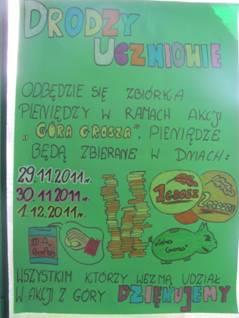 DRODZY
UCZNIOWIE
ODBĘDZIE SIĘ ZBIÓRKA
PIENIĘDZY W RAMACH AKCJI
„GÓRA GROSZA”. PIENIĄDZE
BĘDĄ ZBIERANE W DNIACH:
29.11.2011r.
30.11.2011r.
1.12.2011r.
1 GROSZ
2 GROSZE
WSZYSTKIM KTÓRZY WEZMĄ UDZIAŁ
W AKCJI Z GÓRY DZIĘKUJEMY